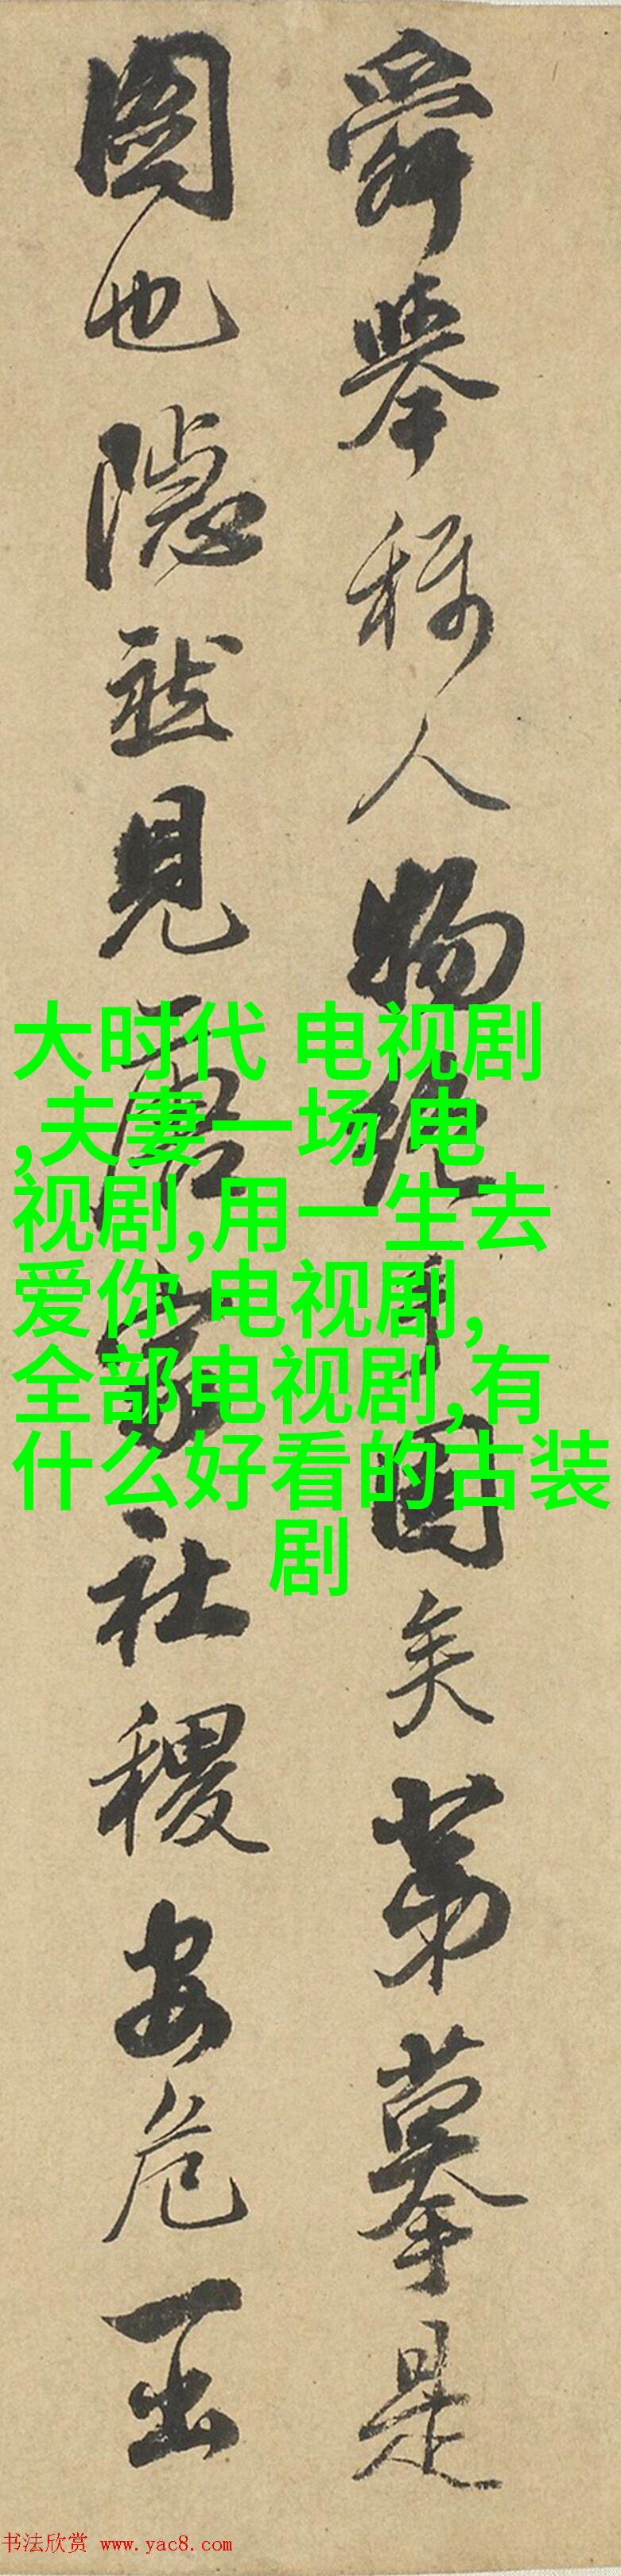 舜舉称人物绝手圖矣第摹是
圖也隠然見唐家社稷安危一出
大时代 电视剧
,夫妻一场 电
视剧,用一生去
爱你 电视剧,
全部电视剧,有
什么好看的古装
剧
书法欣赏 www.yac8.com